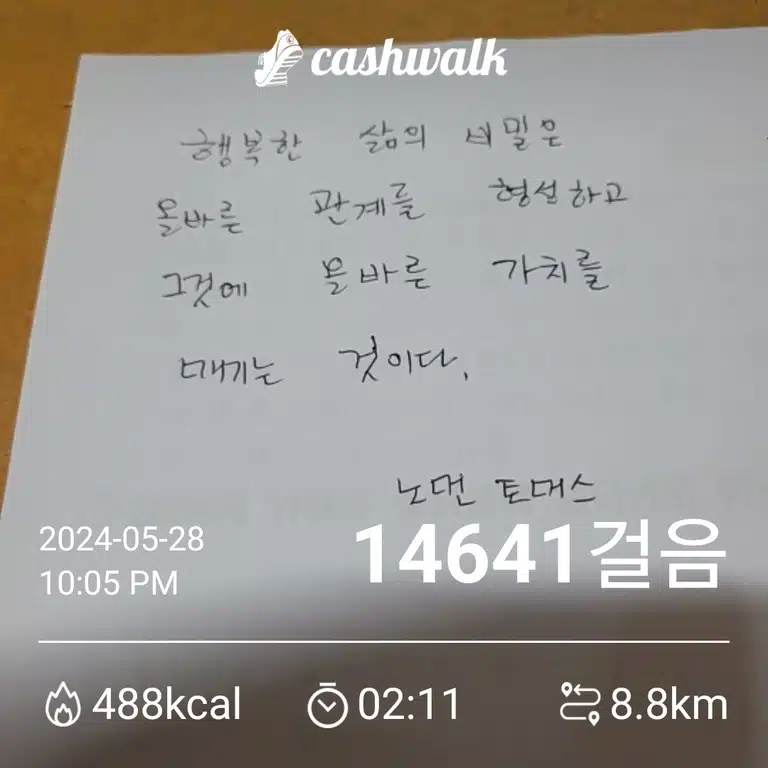 cashwalk
행복한 삶의 비밀은
올바른 관계를 형성하고
그것에 올바른 가치를
매기는 것이다.
노먼 토머스
2024-05-28
10:05 PM
14641걸음
488kcal 02:11 8.8km